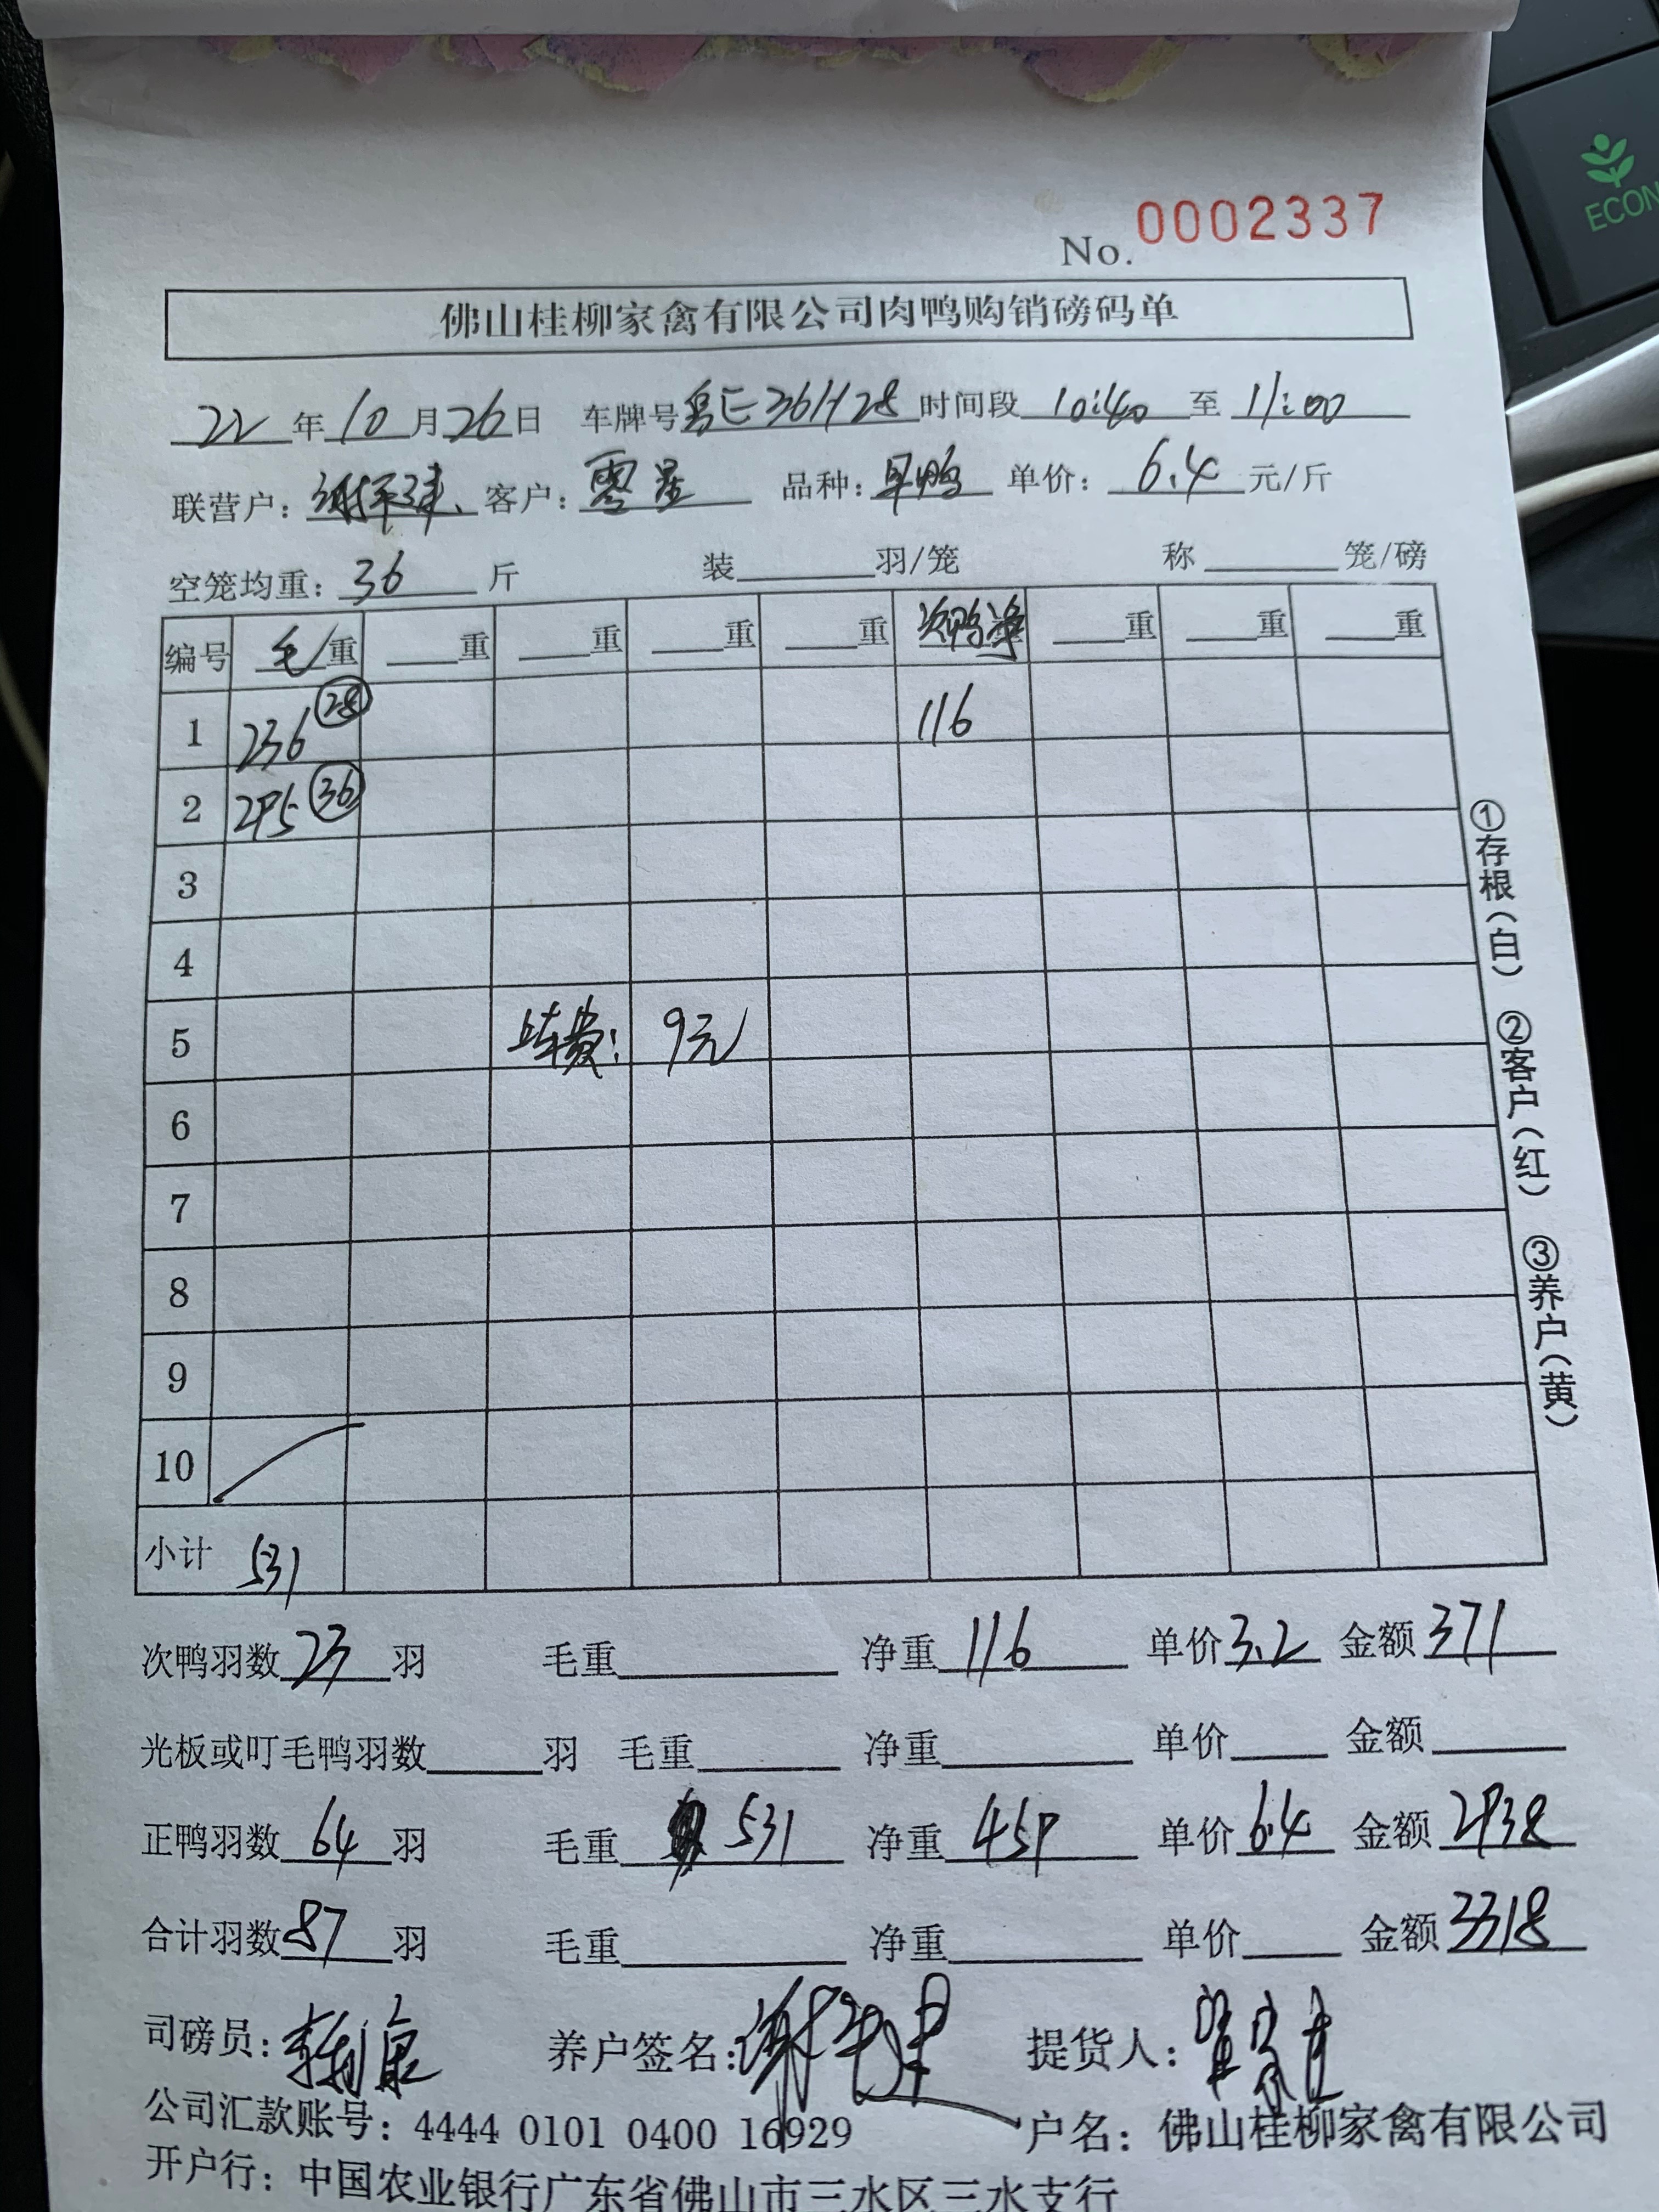 ECON
No. 0002337
佛山桂柳家禽有限公司肉鸭购销磅码单
22年10月26日 车牌号粤E36H28 时间段10:40至11:00
联营户: 客户:零星 品种:旱鸭 单价:6.4元/斤
空笼均重:36斤 装 羽/笼 称 笼/磅
编号 毛重 重 重 重 重 次鸭净 重 重 重
1 236 28 116
2 295 36
3
4
5 上车费: 9元
6
7
8
9
10
小计 531
①存根(白) ②客户(红) ③养户(黄)
次鸭羽数23羽 毛重 净重116 单价3.2 金额371
光板或叮毛鸭羽数 羽 毛重 净重 单价 金额
正鸭羽数64羽 毛重 531 净重459 单价6.4 金额2938
合计羽数87羽 毛重 净重 单价 金额3318
司磅员: 养户签名: 提货人:
公司汇款账号:4444 0101 0400 16929 户名:佛山桂柳家禽有限公司
开户行:中国农业银行广东省佛山市三水区三水支行